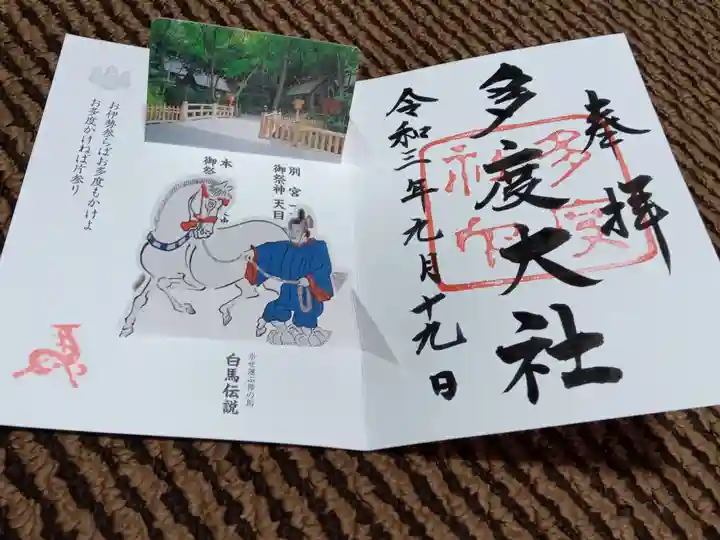 奉拝
多度大社
令和三年九月十九日
別宮
御祭神 天目
本
御祭
幸せ運ぶ神の馬
白馬伝説
お伊勢参らばお多度もかけよ
お多度かけねば片参り